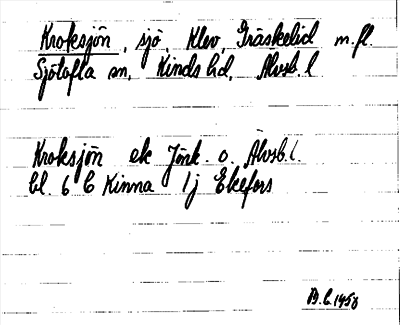 Kroksjön, sjö, Klev, Gräskelid m.fl.
Sjötofta sn, Kinds hd, Älvsb. l
Kroksjön ek Jönk. o. Älvsb. l.
bl. 6 C Kinna 1j Ekefors
B.L. 1958